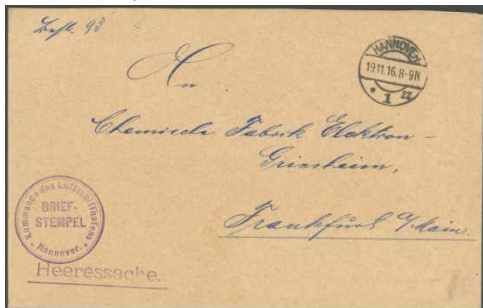 HANNOVER
19.11.16.8-9N
* 1 zz
An
Chemische Fabrik Elektron-
Griesheim,
Frankfurt a/Main.
Kommando des Luftschiffhafens
BRIEF-
STEMPEL
* Hannover. *
Heeressache.